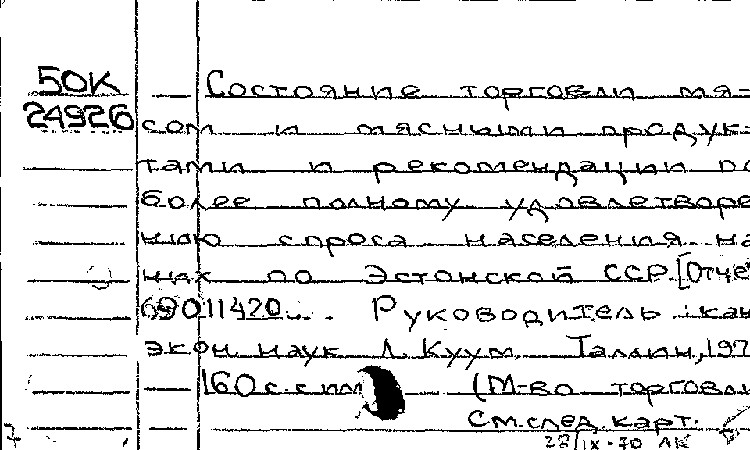 50К Состояние торговли мя-
24926 сом и мясными продук-
тами и рекомендации по
более полному удовлетворе
нию спроса населения на
них по Эстонской ССР. [Отче
69011420... Руководитель: кан
экон. наук Л. Куум. Таллин, 197
160 с. с илл. (М-во торговли
См. след. карт.
28/IX-70 АК